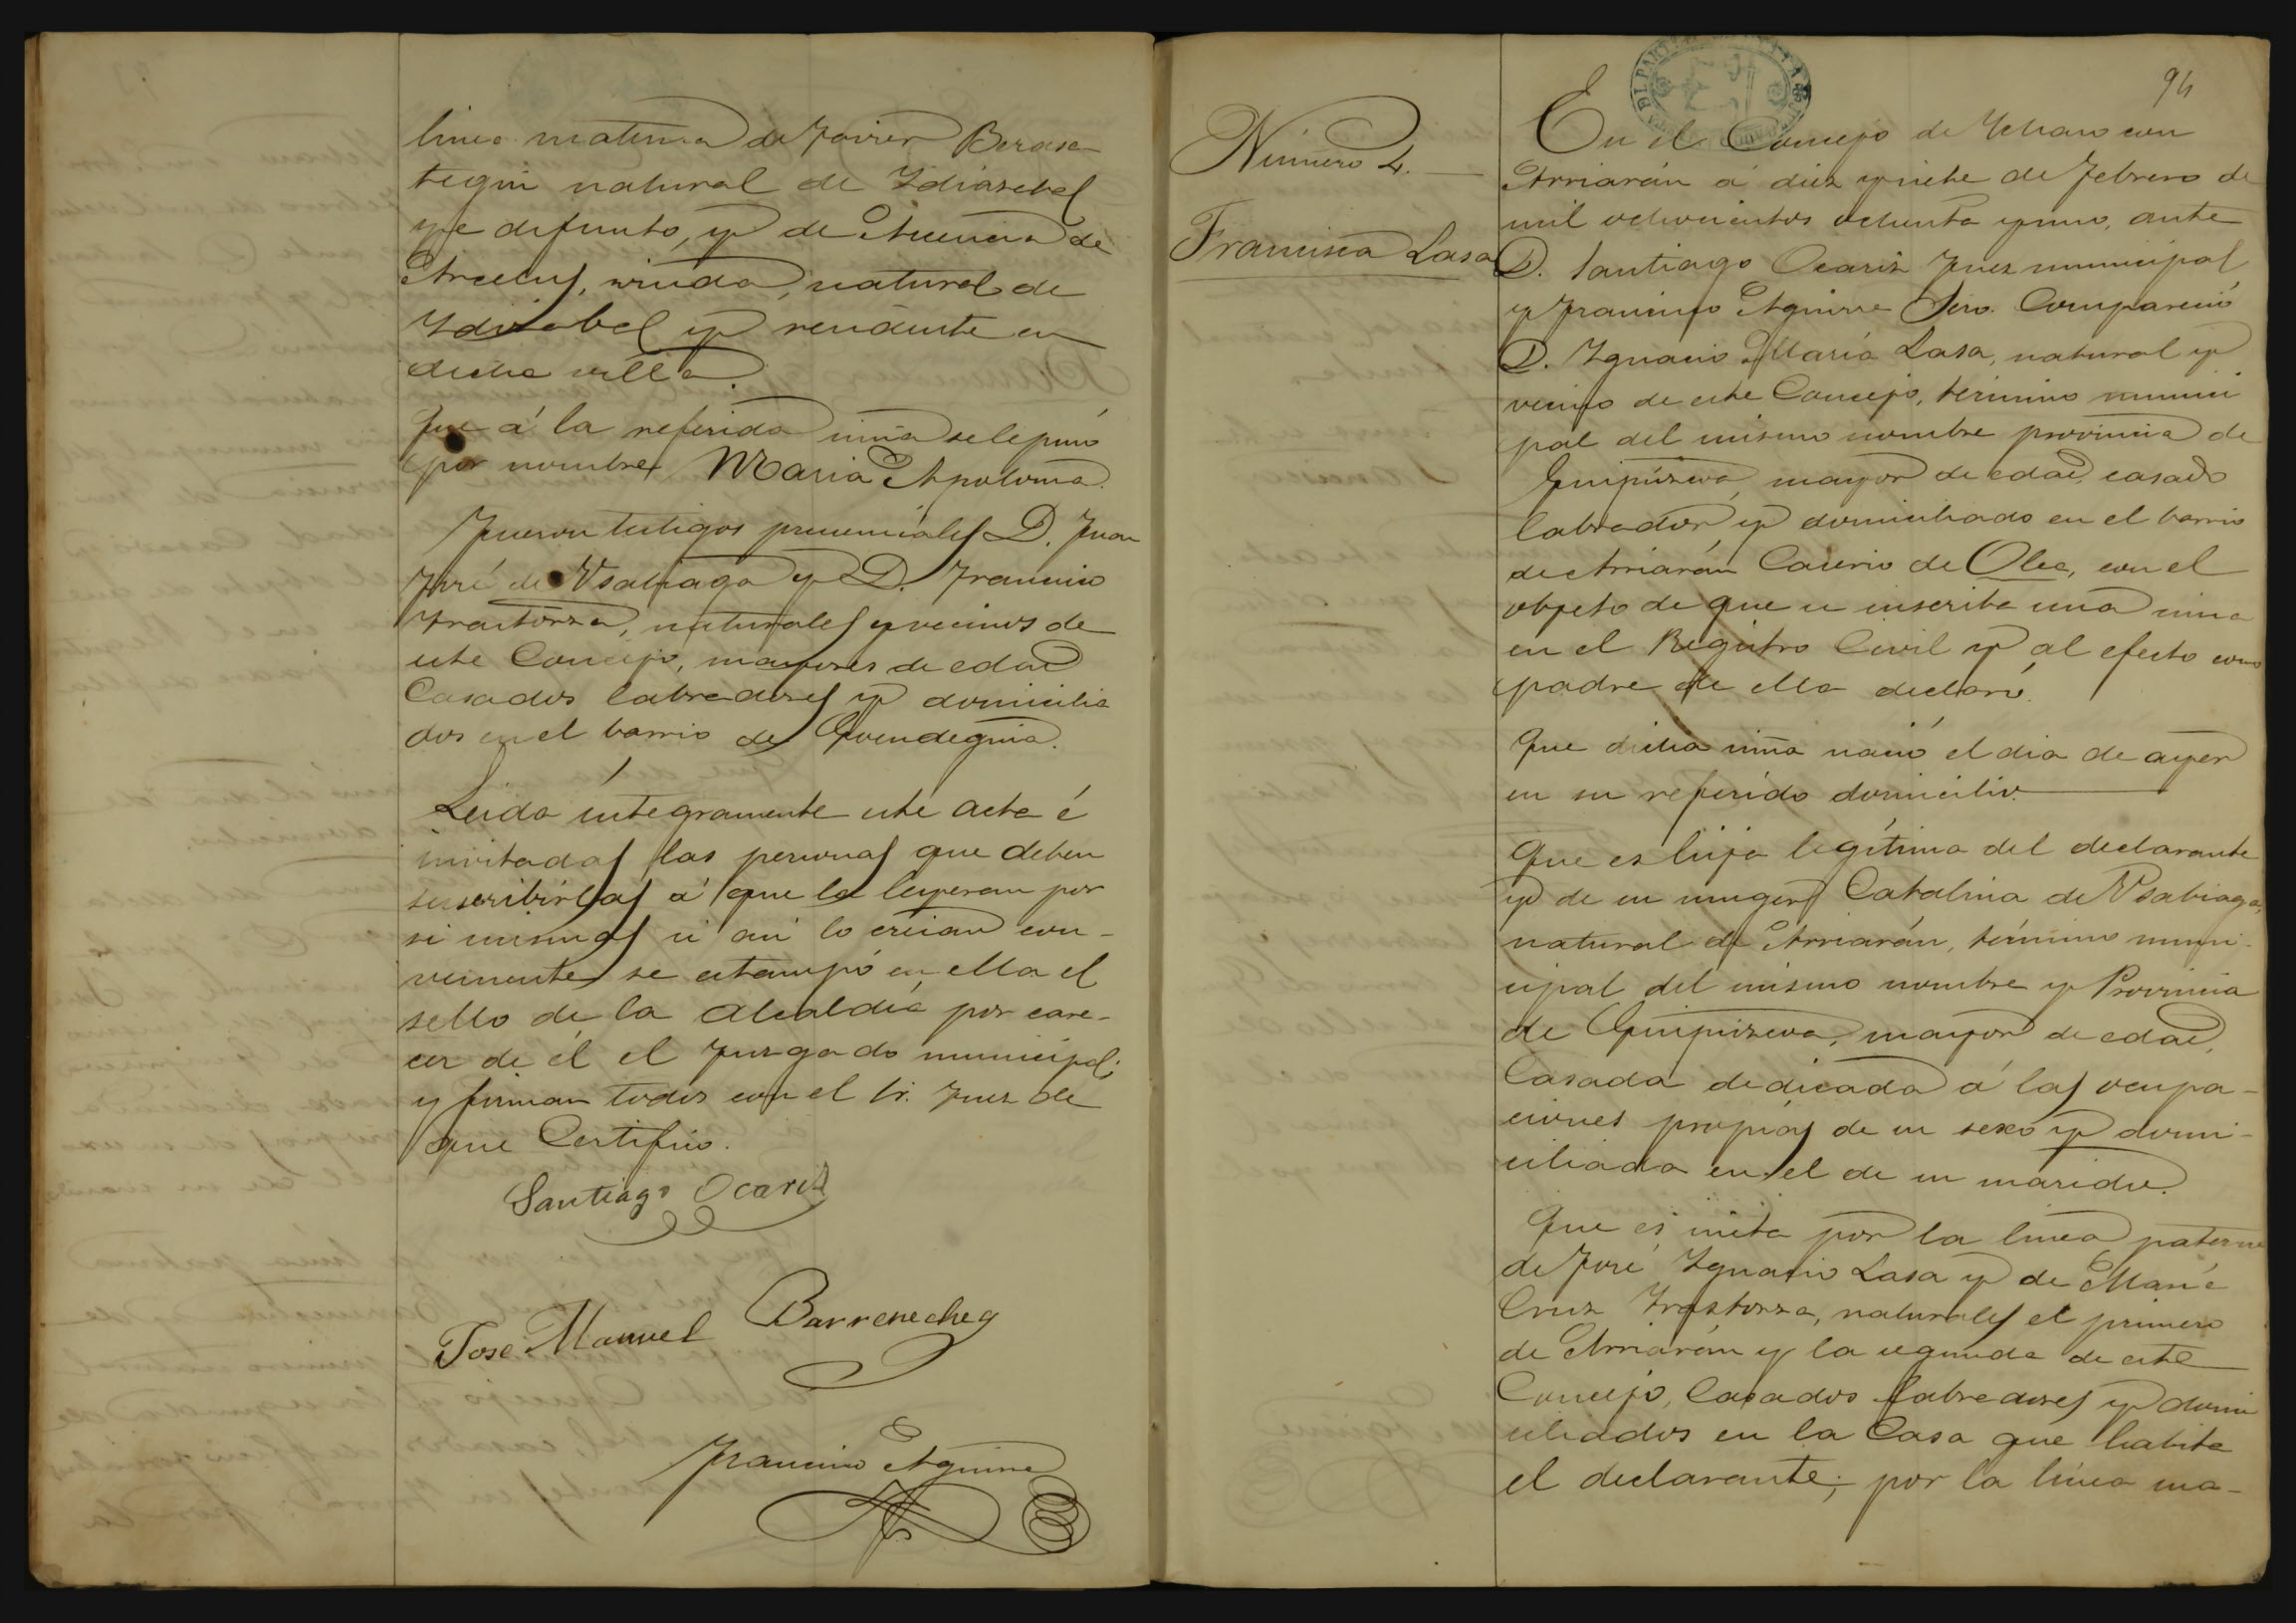 linea materna de Javier Berasa-
tegui natural de Idiazabal
y a difunto, y de Ascencia de
Arcelus, viuda, natural de
Idiazabal y residente en
dicha villa.
Que á la referida niña se le puso
por nombre Maria Apolonia.
Fueron testigos presenciales D. Juan
José de Usabiaga y D. Francisco
Irastorza, naturales y vecinos de
este Concejo, mayores de edad
Casados labradores y domicilia
dos en el barrio de Goendeguia.
Leida integramente esta acta é
invitadas las personas que deben
suscribirlas á que la leyeran por
si mismas si asi lo creian con-
veniente se estampó en ella el
sello de la Alcaldia por care-
cer de él el Juzgado municipal;
y firman todos con el Sr. Juez de
que Certifico.
Santiago Ocariz
Jose Manuel Barrenechea
Francisco Aguirre
94
Número 4.
Francisca Lasa
En el Concejo de Ichaso con
Arriarán á diez y siete de Febrero de
mil ochocientos ochenta y uno, ante
D. Santiago Ocariz Juez municipal
y Francisco Aguirre Srio. Compareció
D. Ignacio María Lasa, natural y
vecino de este Concejo, término munici
pal del mismo nombre provincia de
Guipúzcoa, mayor de edad, casado
labrador, y domiciliado en el barrio
de Arriarán Caserio de Olea, con el
objeto de que se inscriba una niña
en el Registro Civil y al efecto como
padre de ella declaró.
Que dicha niña nació el dia de ayer
en su referido domicilio.
Que es hija legítima del declarante
y de su muger Catalina de Usabiaga,
natural de Arriarán, término muni-
cipal del mismo nombre y Provincia
de Guipúzcoa, mayor de edad,
Casada dedicada á las ocupa-
ciones propias de su sexo y domi-
ciliada en el de su marido.
Que es nieta por la linea paterna
de José Ignacio Lasa y de María
Cruz Irastorza, naturales el primero
de Arriarán y la segunda de este
Concejo, Casados labradores y domi
ciliados en la Casa que habita
el declarante; por la línea ma-